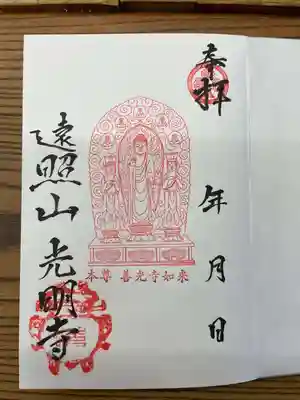 奉拝
年月日
本尊 善光寺如来
遠照山 光明寺